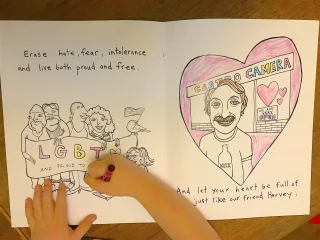 Erase hate, fear, intolerance
and live both proud and free.
LGBT
AND PROUD TO
CASTRO CAMERA
YES
WE ARE
OPEN
MILK
And let your heart be full of
just like our friend Harvey.